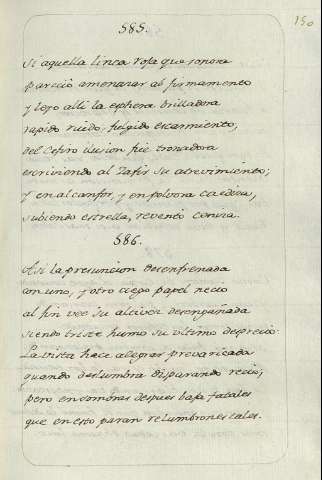 150
585.
Si aquella linea roja que sonora
pareció amenazar al firmamento
y lexo alli la esphera brilladora
rapido ruido, fulgido escarmiento,
del Cefiro ilusion fue tronadora
escriviendo al Zafir su atrevimiento;
y en alcanfor, y en polvora
subiendo estrella, reventó
586.
Asi la presuncion desenfrenada
con uno, y otro ciego papel necio
al fin vee su altivez desengañada
siendo triste humo su ultimo desprecio
La vista hace alegrar prevaricada
quando deslumbra disparando recio;
pero en sombras despues baja fatales
que en esto paran relumbrones tales.